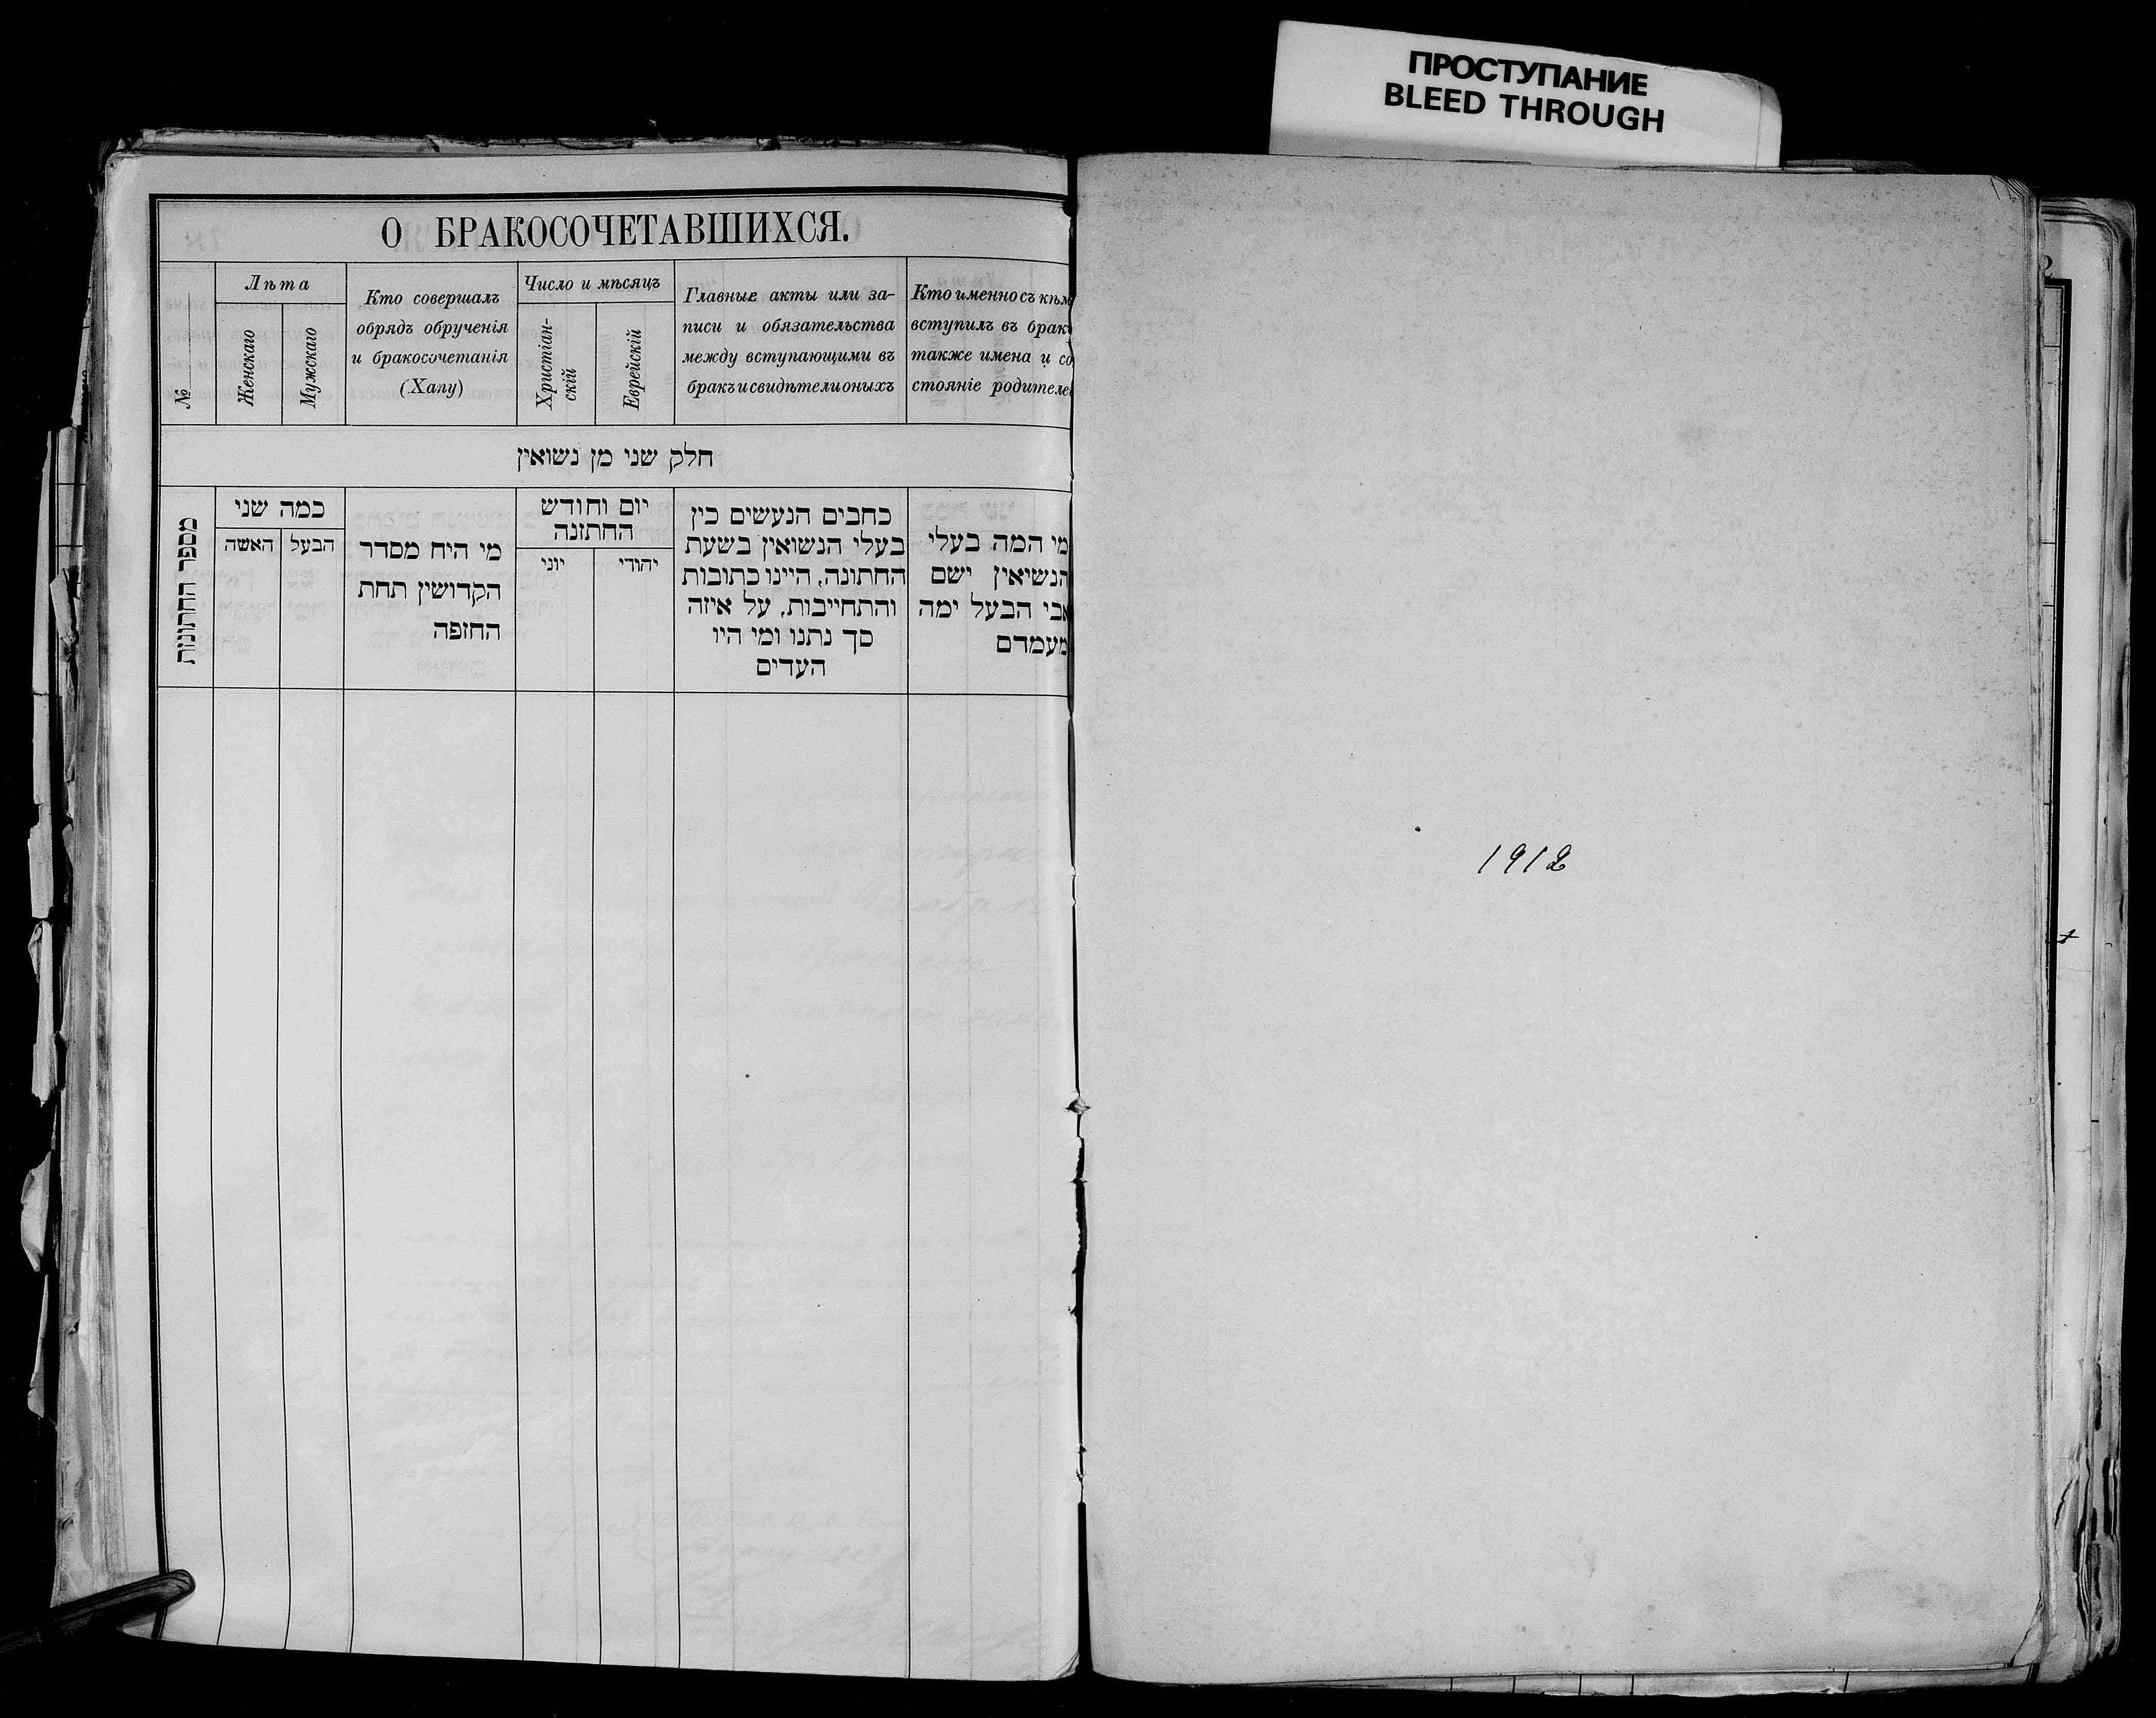 ПРОСТУПАНИЕ
BLEED THROUGH
О БРАКОСОЧЕТАВШИХСЯ.
№
Лѣта
Женскаго
Мужскаго
Кто совершалъ
обрядъ обрученія
и бракосочетанія
(Хапу)
Число и мѣсяцъ
Христіан-
скій
Еврейскій
Главные акты или за-
писи и обязательства
между вступающими въ
бракъ и свидѣтели оныхъ
Кто именно съ кѣм
вступилъ въ брак
также имена и со
стояніе родителе
חלק שני מן נשואין
מספר החתונות
כמה שני
האשה
הבעל
מי היח מסדר
הקדושין תחת
החופה
יום וחודש
החתונה
יוני
יהודי
כחבים הנעשים כין
בעלי הנשואין בשעת
החתונה, היינו כתובות
והתחייבות, על איזה
סך נתנו ומי היו
העדים
מי המה בעלי
הנשיאין ישם
אבי הבעל ימה
מעמדם
1912